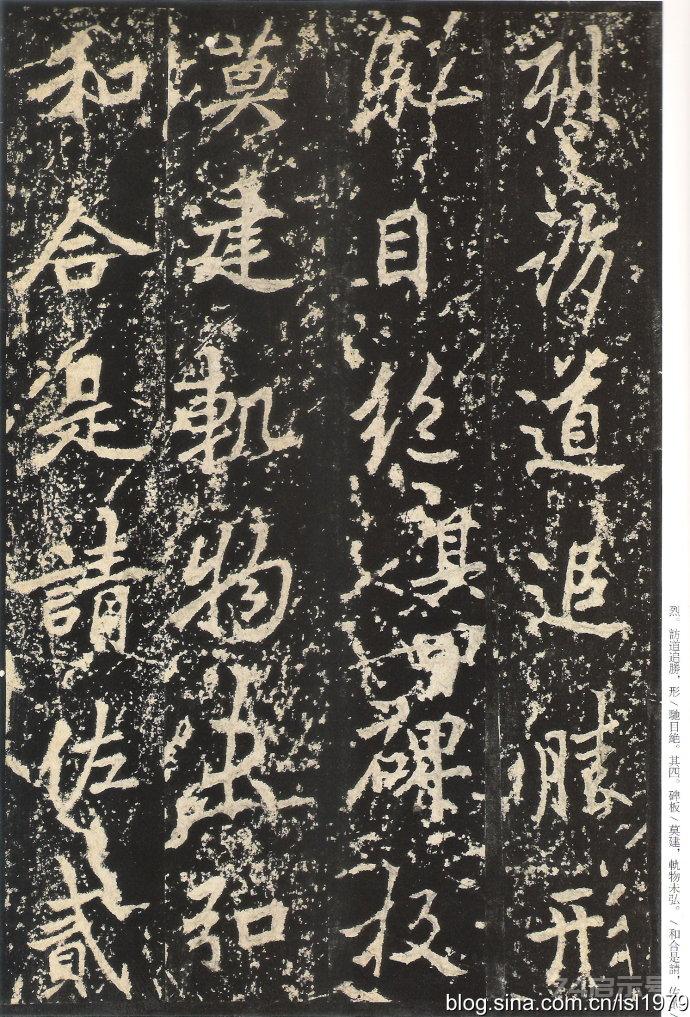 烈訪道追勝形
馳目絶其四碑板
莫建軌物未弘
和合是請佐貳
烈。訪道追勝，形／馳目絶。其四。碑板／莫建，軌物未弘。／和合是請，佐
blog.sina.com.cn/lsl1979